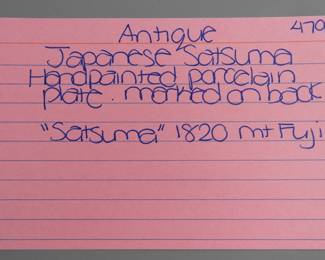 Antique 470
Japanese Satsuma
Handpainted porcelain
plate. marked on back
"Satsuma" 1820 mt Fuji